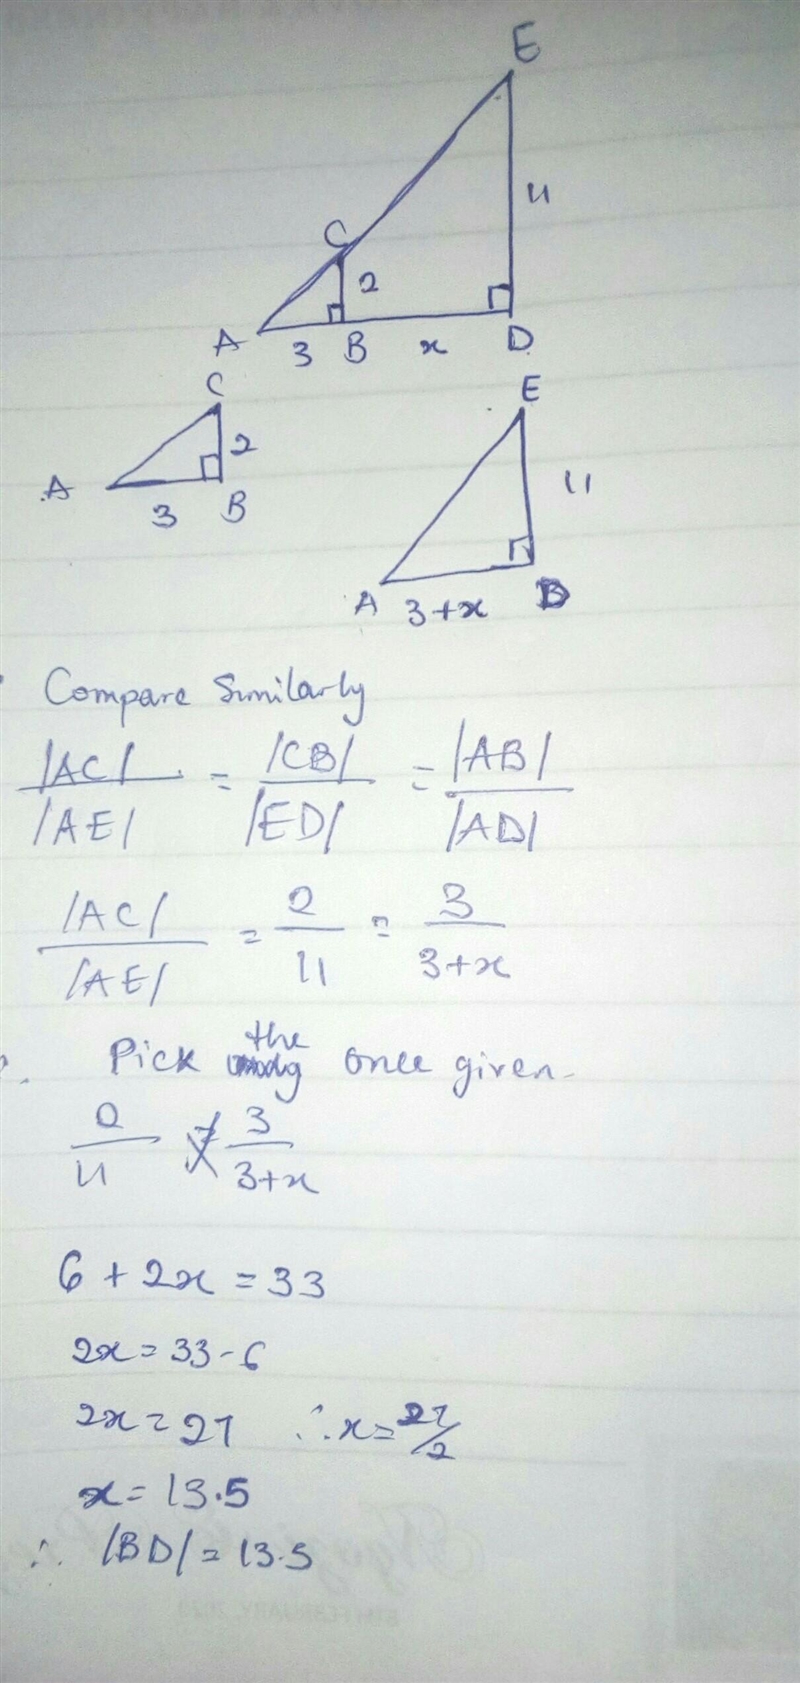 E
11
C
2
A 3 B x D
C
2
A
3 B
E
11
A 3+x D
Compare Similarly
|AC|/|AE| = |CB|/|ED| = |AB|/|AD|
|AC|/|AE| = 2/11 = 3/3+x
Pick the once given.
2/11 = 3/3+x
6 + 2x = 33
2x = 33 - 6
2x = 27 ∴ x = 27/2
x = 13.5
∴ |BD| = 13.5